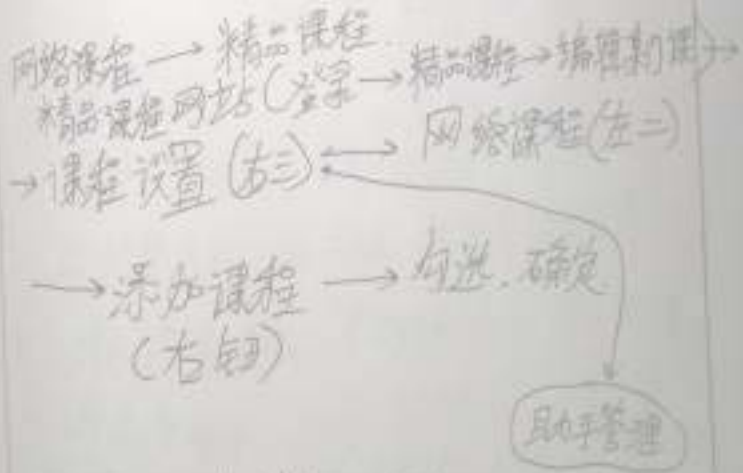 网络课程 → 精品课程
精品课程网站(登录 → 精品课程 → 编辑某门课) →
→ 课程设置(右三) ↔ 网络课程(左二)
→ 添加课程 → 勾选、确定
(右钮)
助手管理